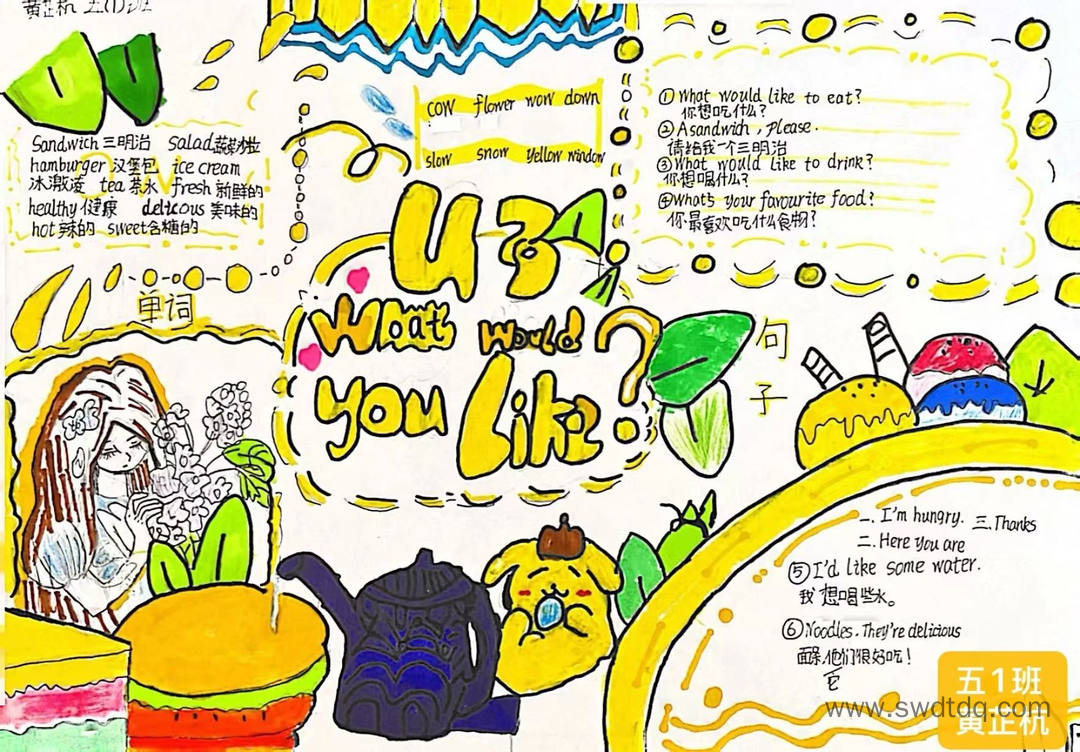 黄正杭 五(1)班
Sandwich 三明治 salad 蔬菜沙拉
hamburger 汉堡包 ice cream
冰激凌 tea 茶水 fresh 新鲜的
healthy 健康 delicous 美味的
hot 辣的 sweet 含糖的
单词
cow flower wow down
slow snow yellow window
U3
What would
you like?
句
子
① What would like to eat?
你想吃什么?
② A sandwich, please.
请给我一个三明治
③ What would like to drink?
你想喝什么?
④ What's your favourite food?
你最喜欢吃什么食物?
一. I'm hungry. 三. Thanks
二. Here you are
⑤ I'd like some water.
我想喝些水。
⑥ Noodles. They're delicious
面条,他们很好吃!
它
五1班
黄正杭
www.swdtdq.com